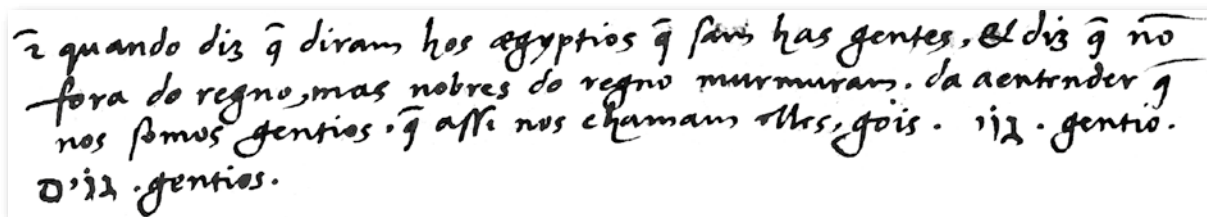 ⁊ quando diz q̃ diram hos ægyptios q̃ sam has gentes, & diz q̃ nõ
fora do regno, mas nobres do regno murmuram. da aentender q̃
nos somos gentios. q̃ assi nos chamam elles, gois. גוי . gentio.
גוים . gentios.